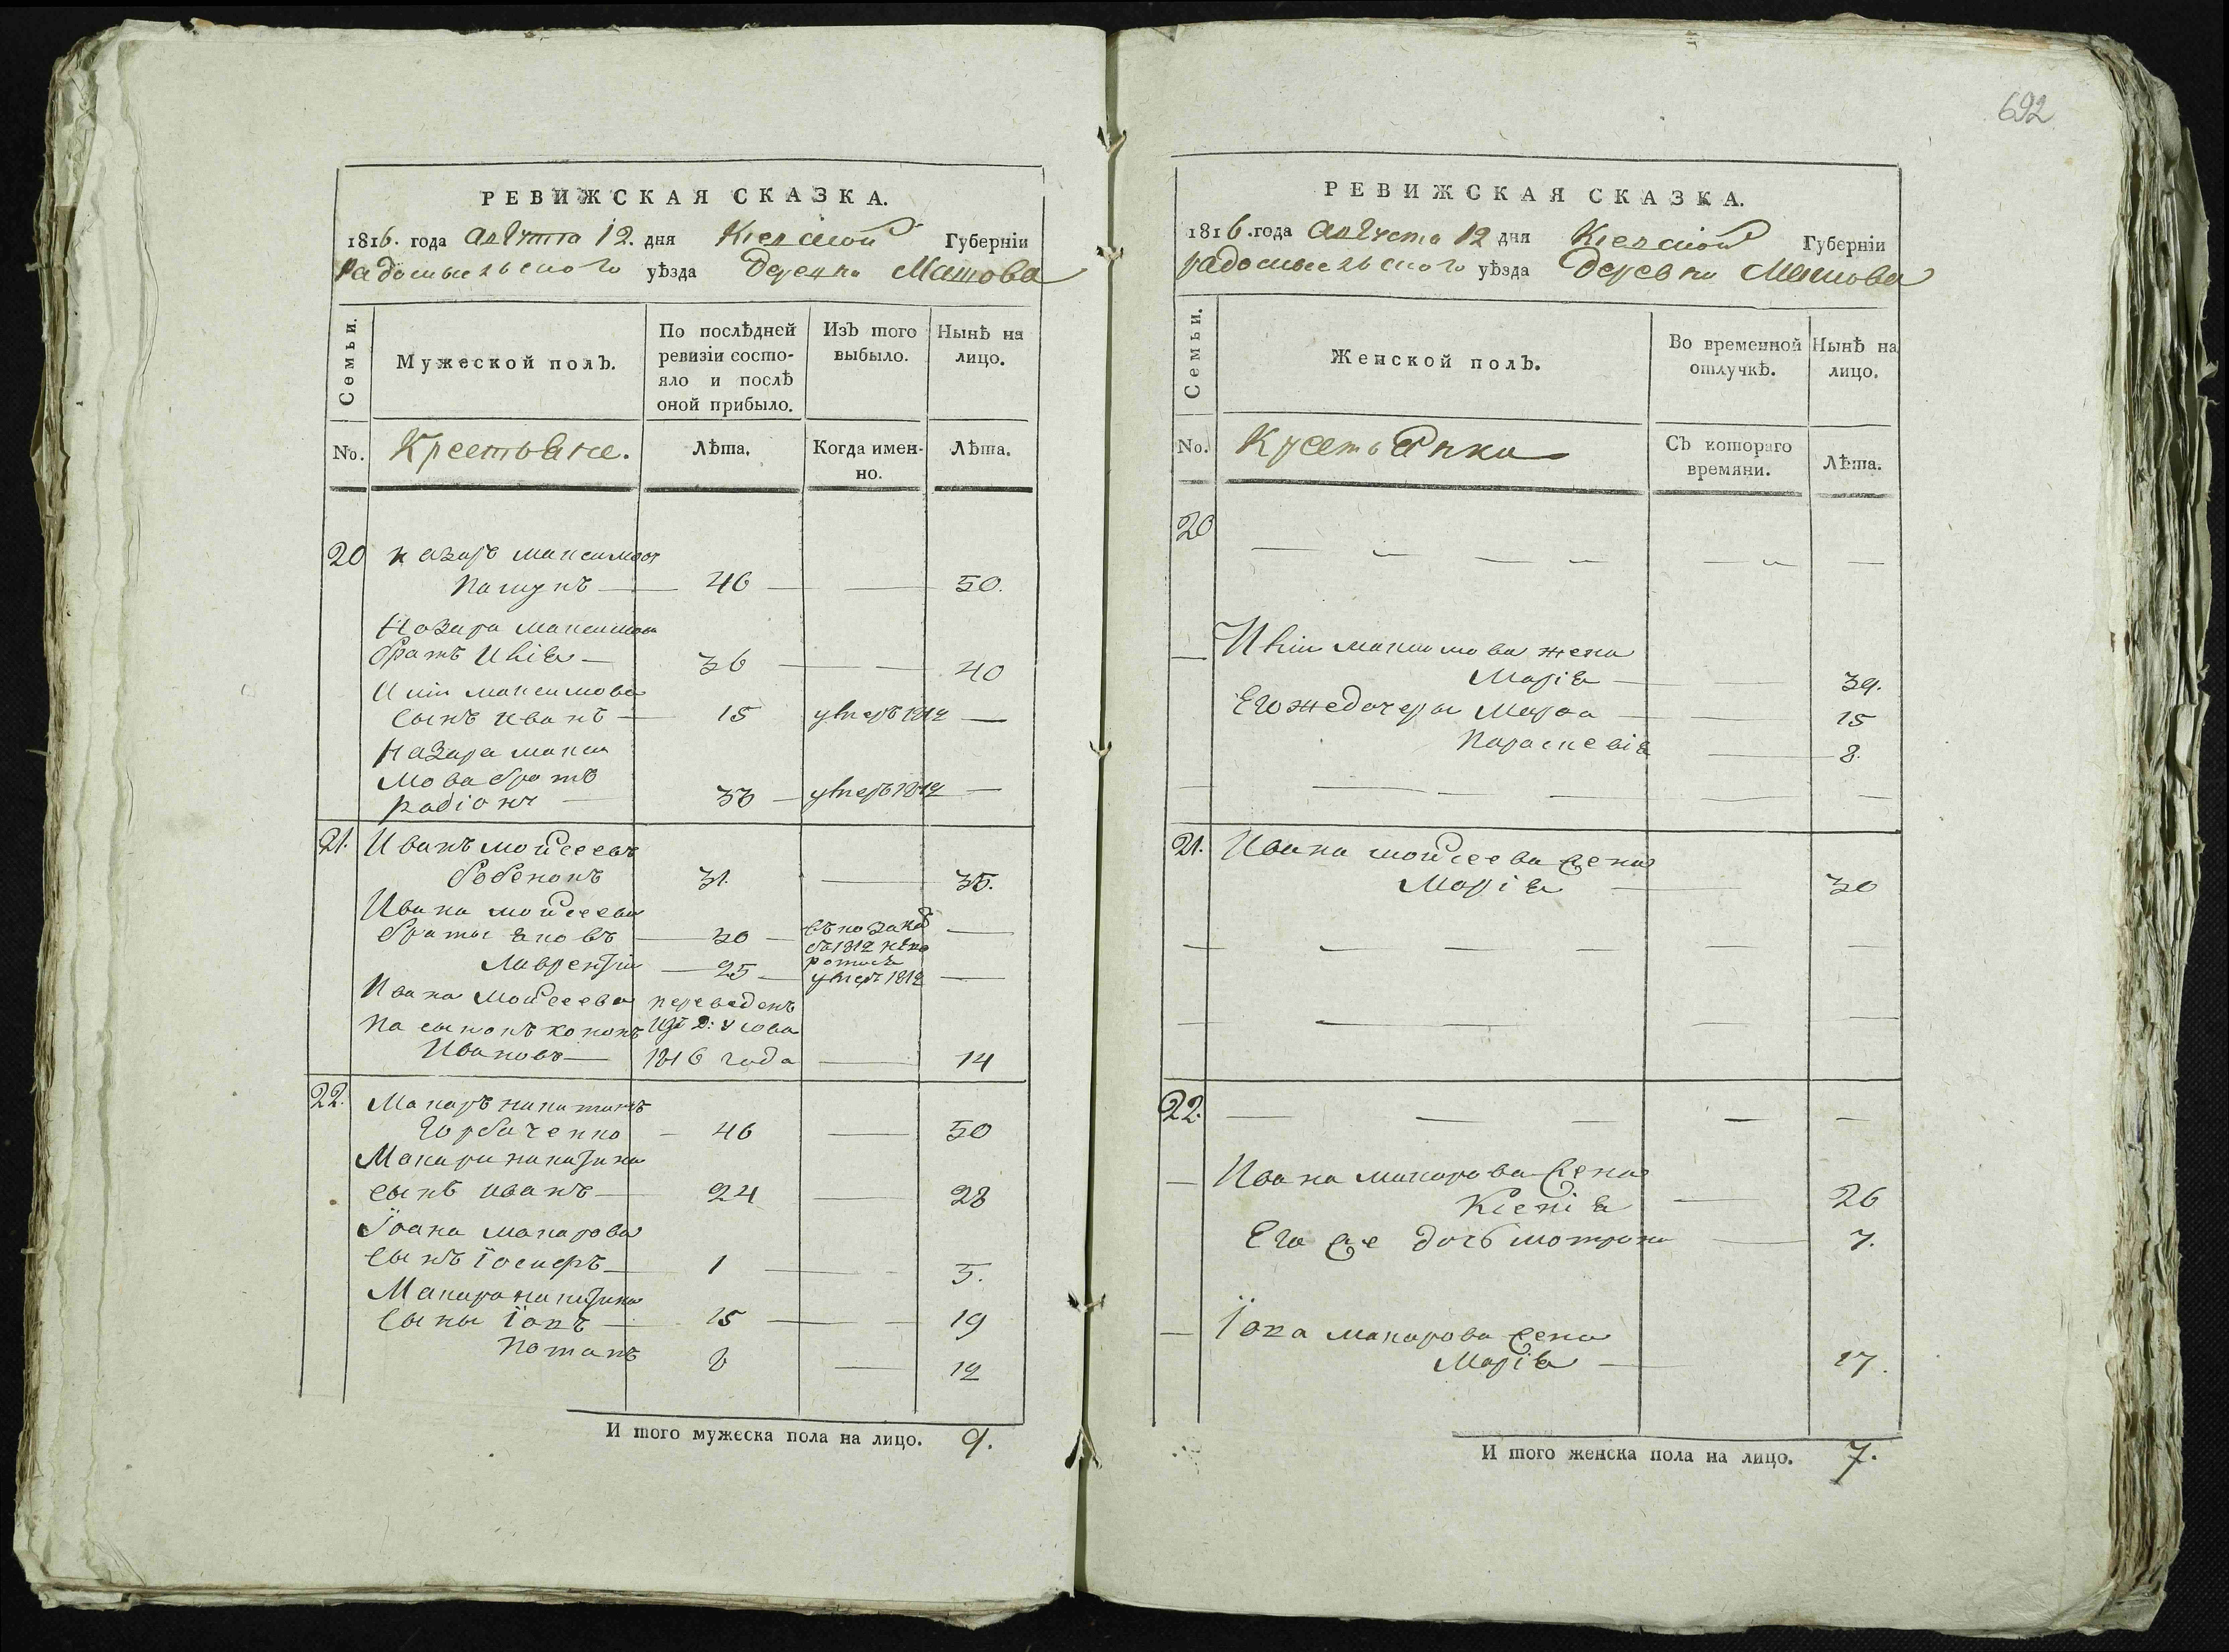 692
РЕВИЖСКАЯ СКАЗКА.
1816. года августа 12. дня Кіевской Губерніи
Радомысльского уѣзда деревни
Семьи.
Мужеской полъ.
По послѣдней ревизіи состо-
яло и послѣ
оной прибыло.
Изъ того
выбыло.
Нынѣ на
лицо.
No. Крестьяне. Лѣта. Когда имен-
но. Лѣта.
20 Назаръ Максимовъ
46 — — 50.
Назара Максимова
братъ — 36 — — 40
Максимова
сынъ Иванъ — 15 умеръ 1812 —
Назара Макси
мова братъ
Радіонъ — 33 — умеръ 1812 —
21. Иванъ Мойсеевъ
31. — 35.
Ивана Мойсеева
братья Яковъ — 30 — —
Лаврентій — 25 — умеръ 1812 —
Ивана Мойсеева переведенъ
пасынокъ
Ивановъ — 1816 года — 14
22. Макаръ
Горбаченко — 46 — 50
Макара
сынъ Иванъ — 24 — 28
Іоана Макарова
сынъ — 1 — 5.
Макара
сыны Іовъ — 15 — 19
Потапъ 8 — 12
И того мужеска пола на лицо. 9.
РЕВИЖСКАЯ СКАЗКА.
1816. года августа 12 дня Кіевской Губерніи
радомысльского уѣзда деревни
Семьи.
Женской полъ.
Во временной
отлучкѣ.
Нынѣ на
лицо.
No. Крестьянки Съ котораго
времяни. Лѣта.
20
— Максимова жена
Марія — — 39.
Его же дочеры — — 15
Параскевія — 8.
21. Ивана мойсеева жена
Марія — — 30
22.
— Ивана макарова жена
Ксенія — 26
Его же дочь мотрона — 7.
— Іова макарова жена
Марія — 17.
И того женска пола на лицо. 7.